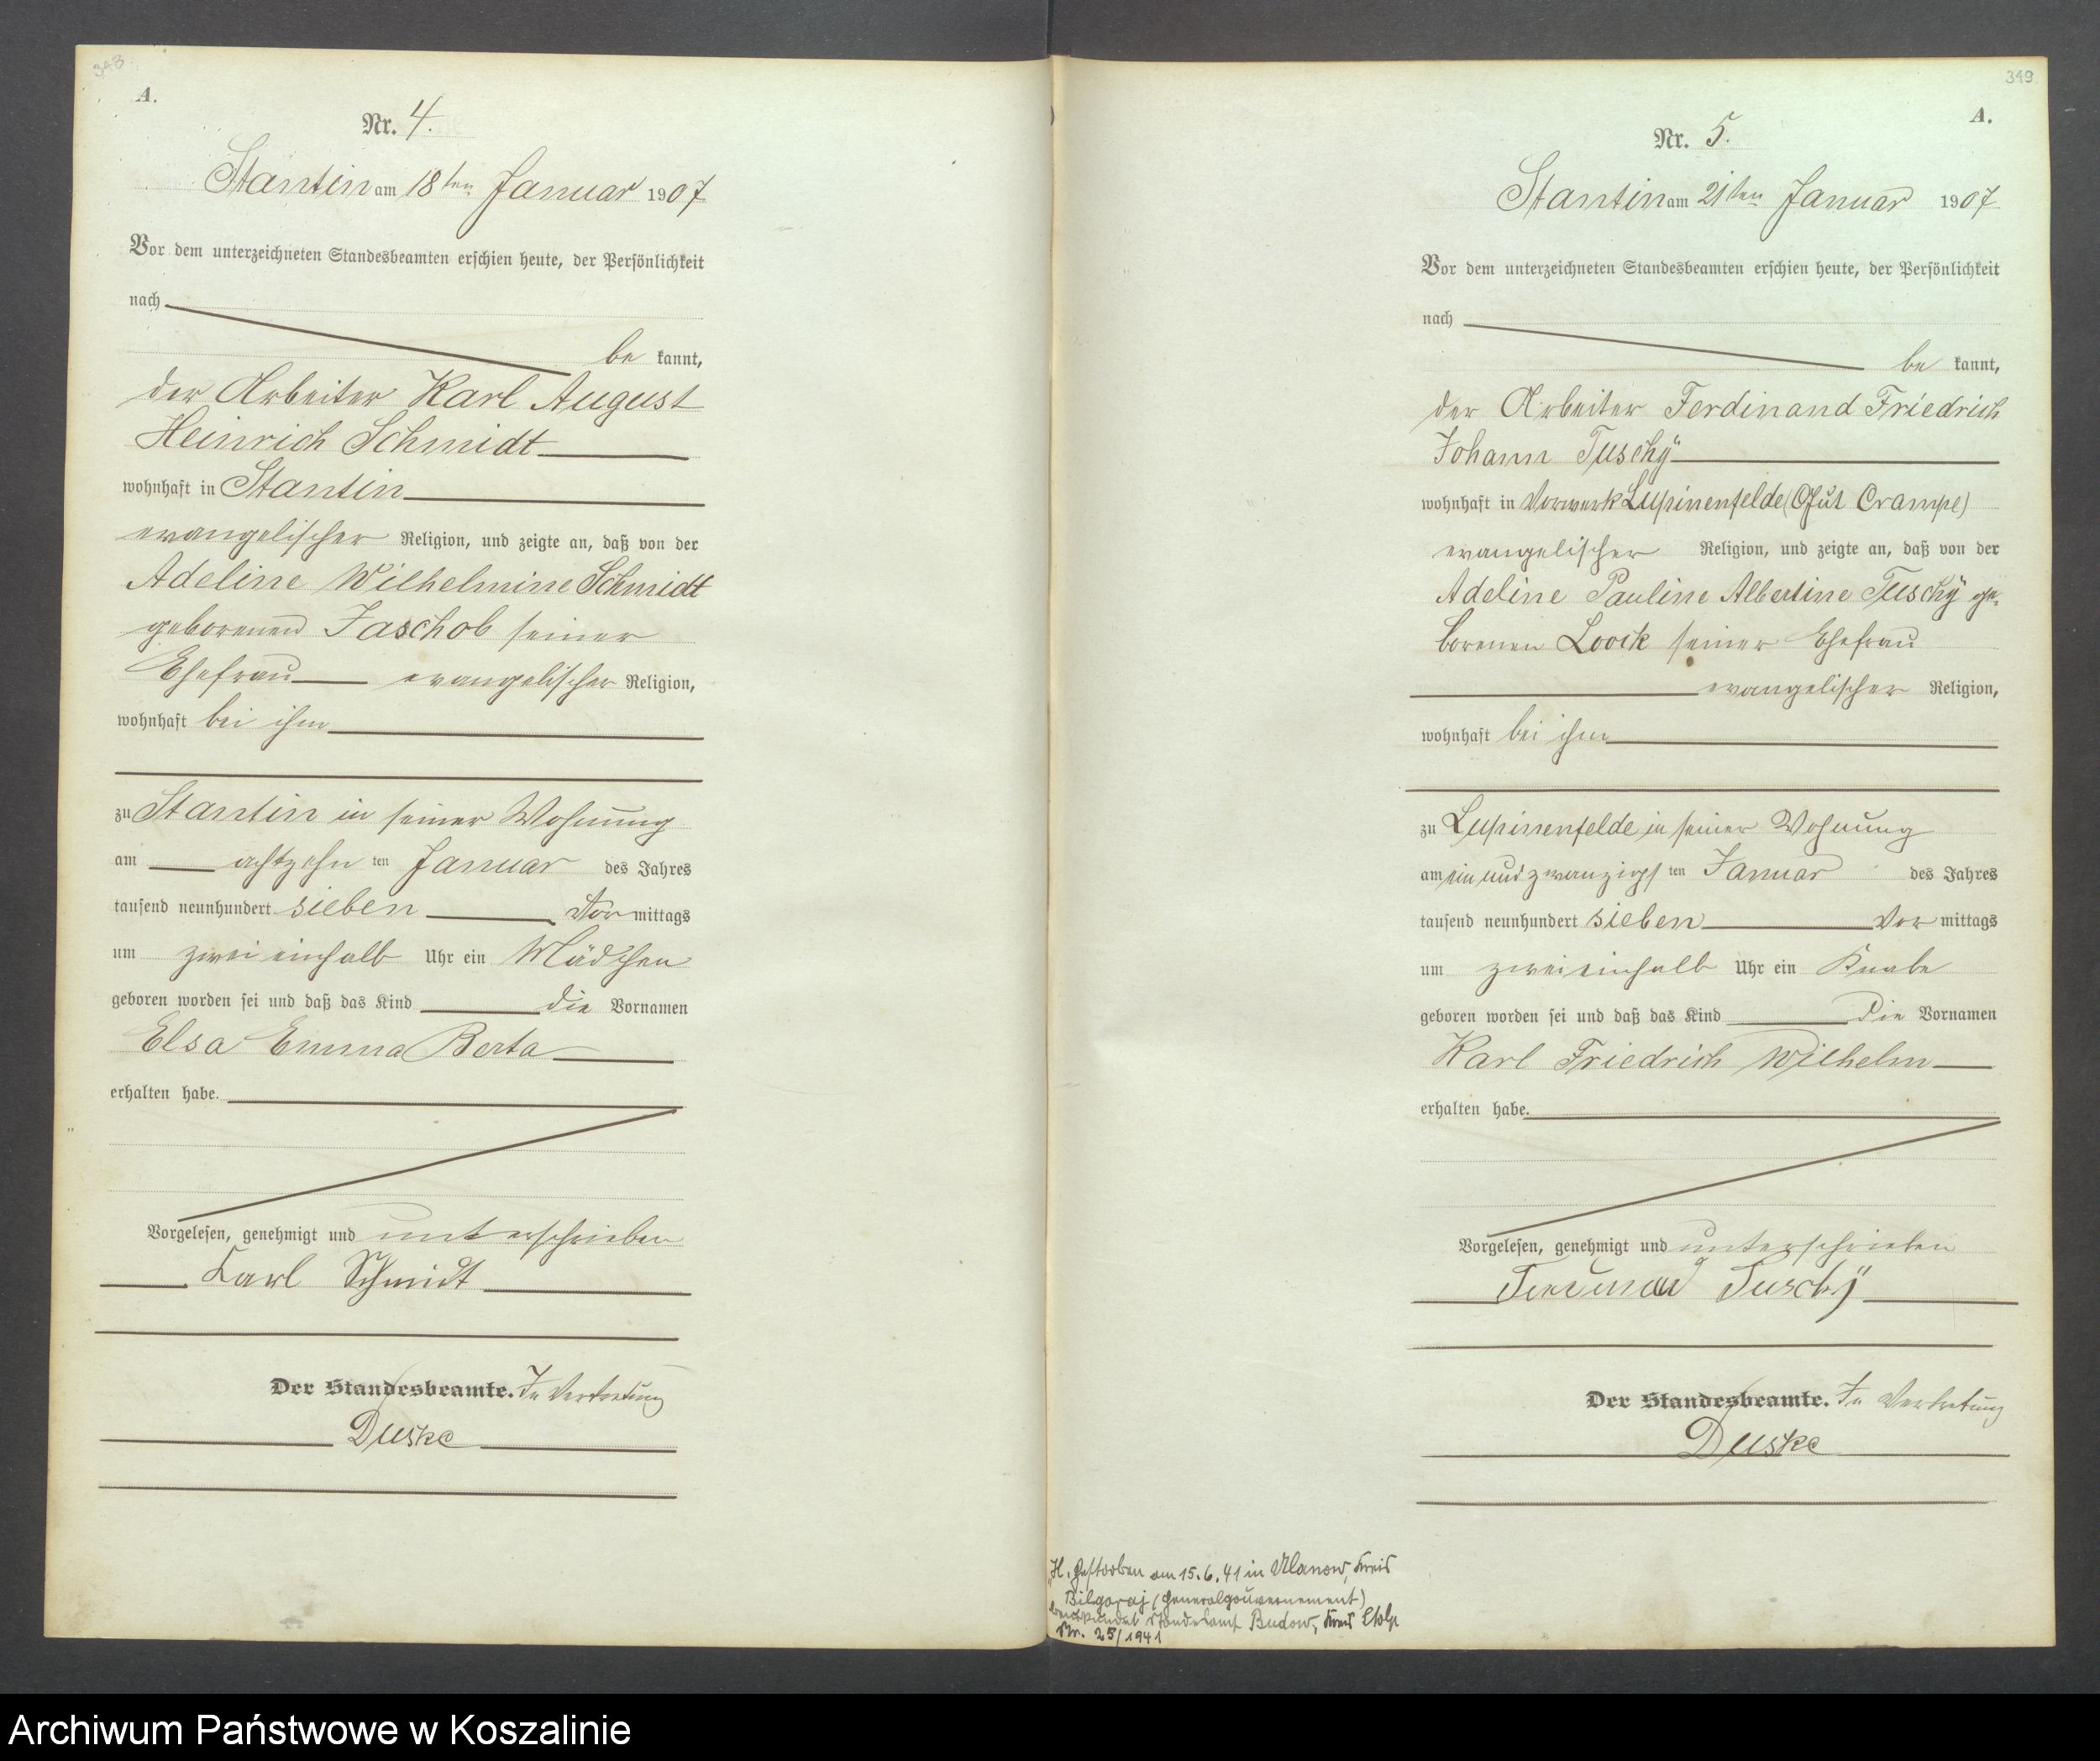 348
A.
Nr. 4.
Stantin am 18ten Januar 1907
Vor dem unterzeichneten Standesbeamten erschien heute, der Persönlichkeit
nach
be kannt,
der Arbeiter Karl August
Heinrich Schmidt
wohnhaft in Stantin
evangelischer Religion, und zeigte an, daß von der
Adeline Wilhelmine Schmidt
geborenen Jaschob seiner
Ehefrau evangelischer Religion,
wohnhaft bei ihm
zu Stantin in seiner Wohnung
am achtzehn ten Januar des Jahres
tausend neunhundert sieben Vor mittags
um zwei einhalb Uhr ein Mädchen
geboren worden sei und daß das Kind die Vornamen
Elsa Emma Berta
erhalten habe.
Vorgelesen, genehmigt und unterschrieben
Karl Schmidt
Der Standesbeamte. In Vertretung
Duske
349
A.
Nr. 5.
Stantin am 21ten Januar 1907
Vor dem unterzeichneten Standesbeamten erschien heute, der Persönlichkeit
nach
be kannt,
der Arbeiter Ferdinand Friedrich
Johann Tuschÿ
wohnhaft in Vorwerk Lupinenfelde (Gut Crampe)
evangelischer Religion, und zeigte an, daß von der
Adeline Pauline Albertine Tuschÿ ge-
borenen Loock seiner Ehefrau
evangelischer Religion,
wohnhaft bei ihm
zu Lupinenfelde in seiner Wohnung
am ein und zwanzigs ten Januar des Jahres
tausend neunhundert sieben Vor mittags
um zwei einhalb Uhr ein Knabe
geboren worden sei und daß das Kind die Vornamen
Karl Friedrich Wilhelm
erhalten habe.
Vorgelesen, genehmigt und unterschrieben
Ferdinand Tuschÿ
Der Standesbeamte. In Vertretung
Duske
H. Gestorben am 15.6.41 in Ulanow, Kreis
Bilgoraj (Generalgouvernement)
beurkundet Standesamt Budow, Kreis Stolp
Nr. 25/1941
Archiwum Państwowe w Koszalinie